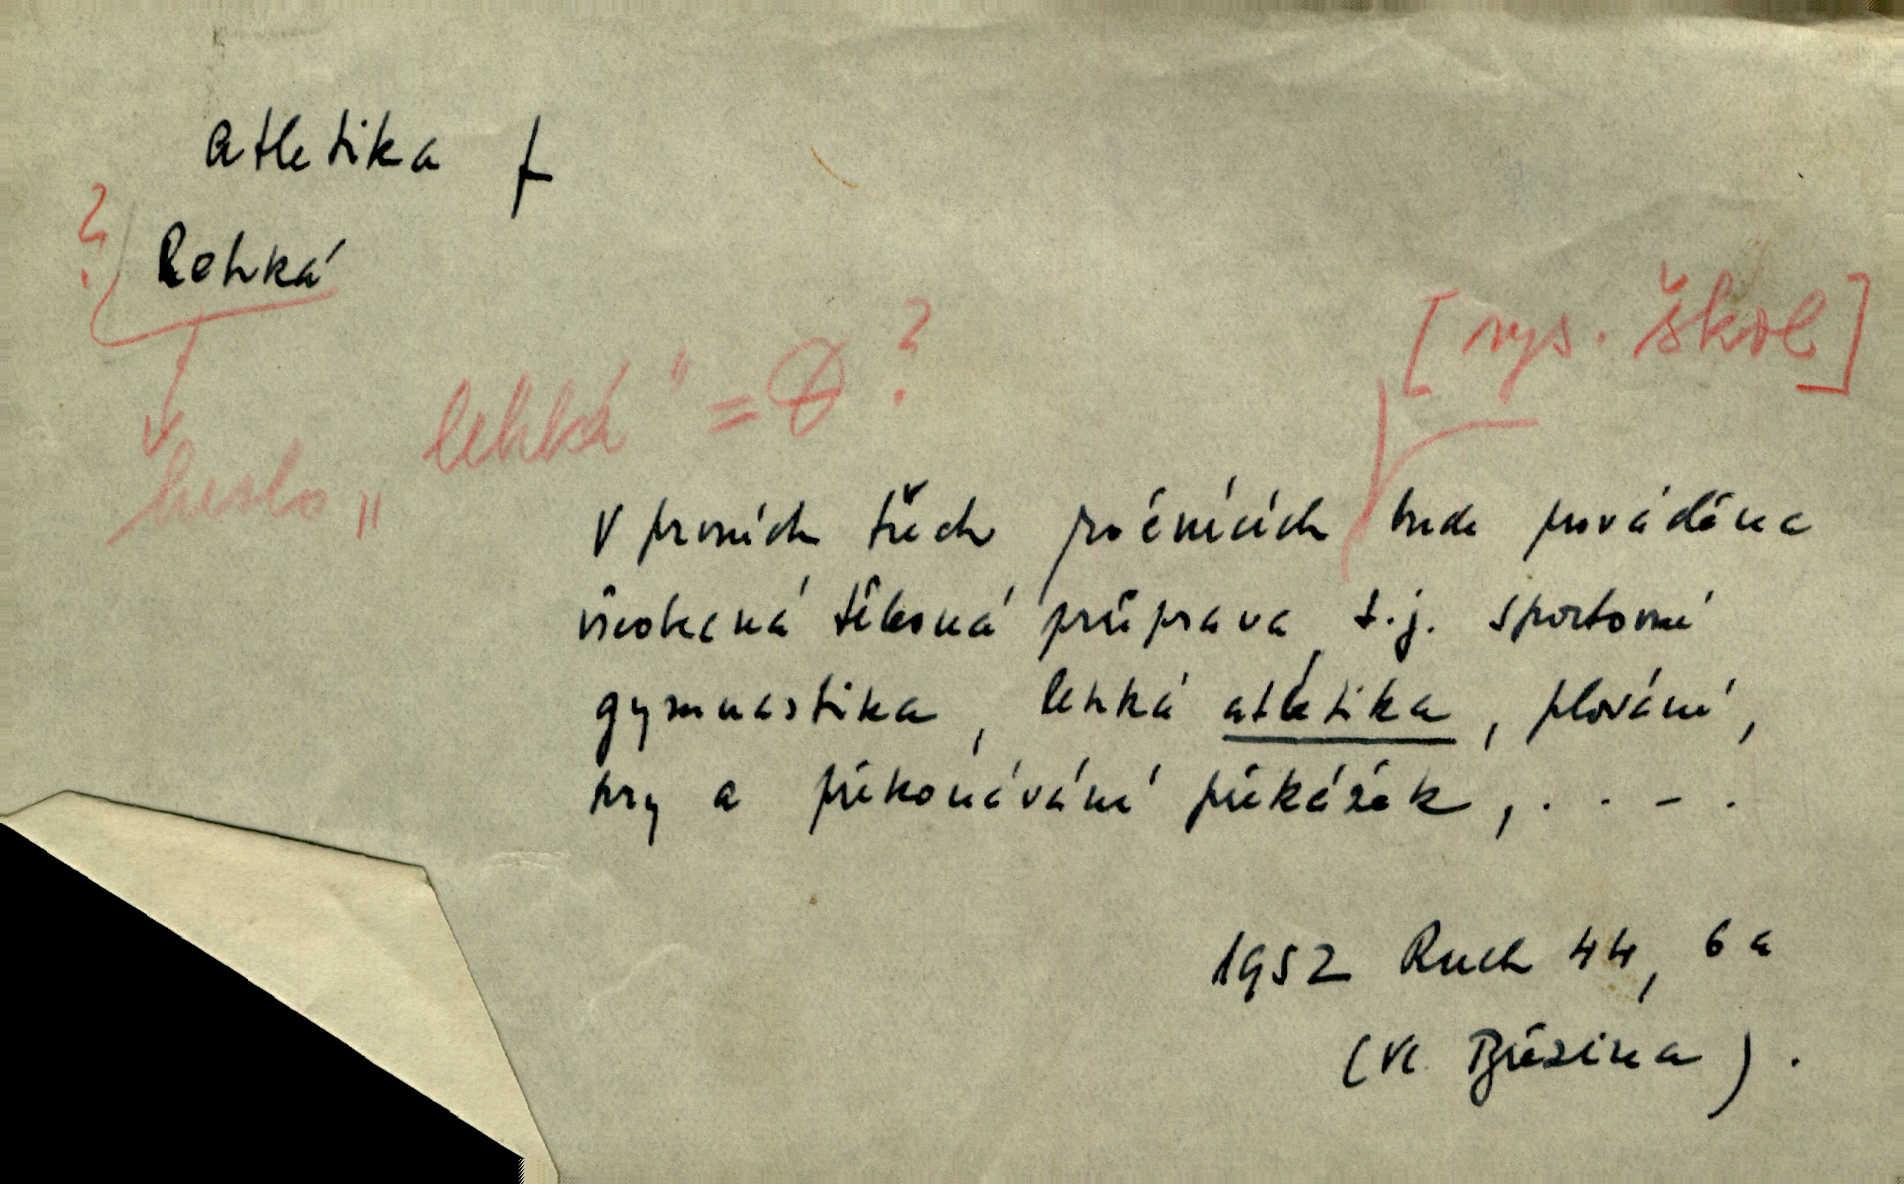 atletika f
?
Lehká
[vys. škol]
heslo „lehká" = ∅ ?
V prvních třech ročnících bude prováděna
všeobecná tělesná průprava, t.j. sportovní
gymnastika, lehká atletika, plování,
hry a překonávání překážek, . . - .
1952 Ruch 44, 6a
(Vl. Březina).